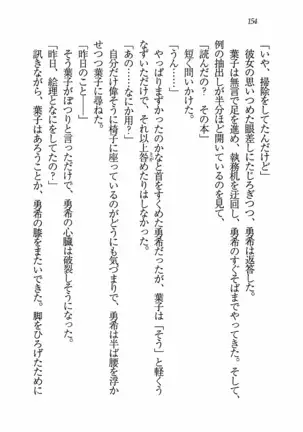 154
「いや、掃除をしてたんだけど」
彼女の思いつめた眼差しにたじろぎつつ、勇希は返答した。
葉子は無言で足を進め、執務机を迂回し、勇希のすぐそばまでやってきた。そして、
例の抽出しが半分ほど開いているのを見て、
「読んだの? その本」
短く問いかけた。
「うん……」
やっぱりまずかったのかなと首をすくめた勇希だったが、葉子は「そう」と軽くう
なずいただけで、それ以上咎めたりはしなかった。
「あの……なにか用?」
自分だけ偉そうに椅子に座っているのがどうにも気づまりで、勇希は半ば腰を浮か
せつつ葉子に尋ねた。
「昨日のこと――」
そう葉子がぽつりと言っただけで、勇希の心臓は破裂しそうになった。
「昨日、絵理となにをしてたの?」
訊きながら、葉子はあろうことか、勇希の膝をまたいできた。脚をひろげたために